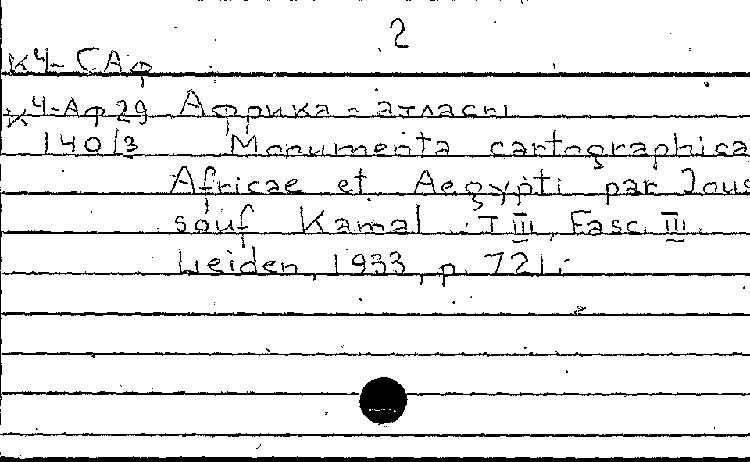 2
К4-САф
К4-Аф29 Африка - атласы
140/3 Monumenta cartographica
Africae et Aegypti par Jous
souf Kamal. T III, Fasc. III.
Leiden, 1933, p. 721.